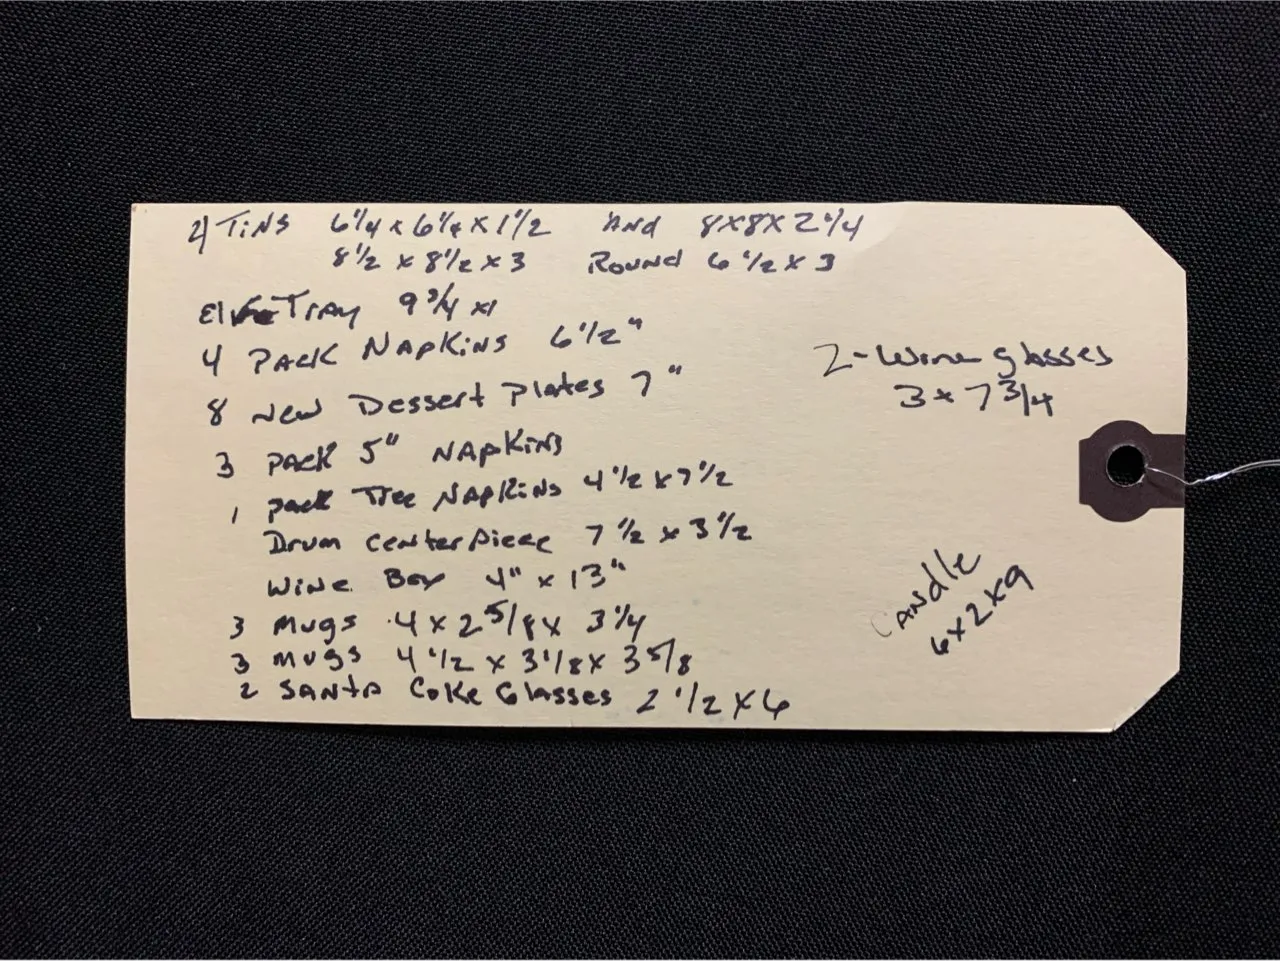 4 Tins 6 1/4 x 6 1/4 x 1 1/2 And 8x8x2 1/4
8 1/2 x 8 1/2 x 3 Round 6 1/2 x 3
Tray 9 3/4 x1
4 Pack Napkins 6 1/2"
8 New Dessert Plates 7"
3 Pack 5" Napkins
1 pack Tree Napkins 4 1/2 x 7 1/2
Drum Centerpiece 7 1/2 x 3 1/2
Wine Box 4" x 13"
3 Mugs 4 x 2 5/8 x 3 1/4
3 Mugs 4 1/2 x 3 1/8 x 3 5/8
2 Santa Coke Glasses 2 1/2 x 6
2-Wine glasses
3 x 7 3/4
Candle
6x2x9